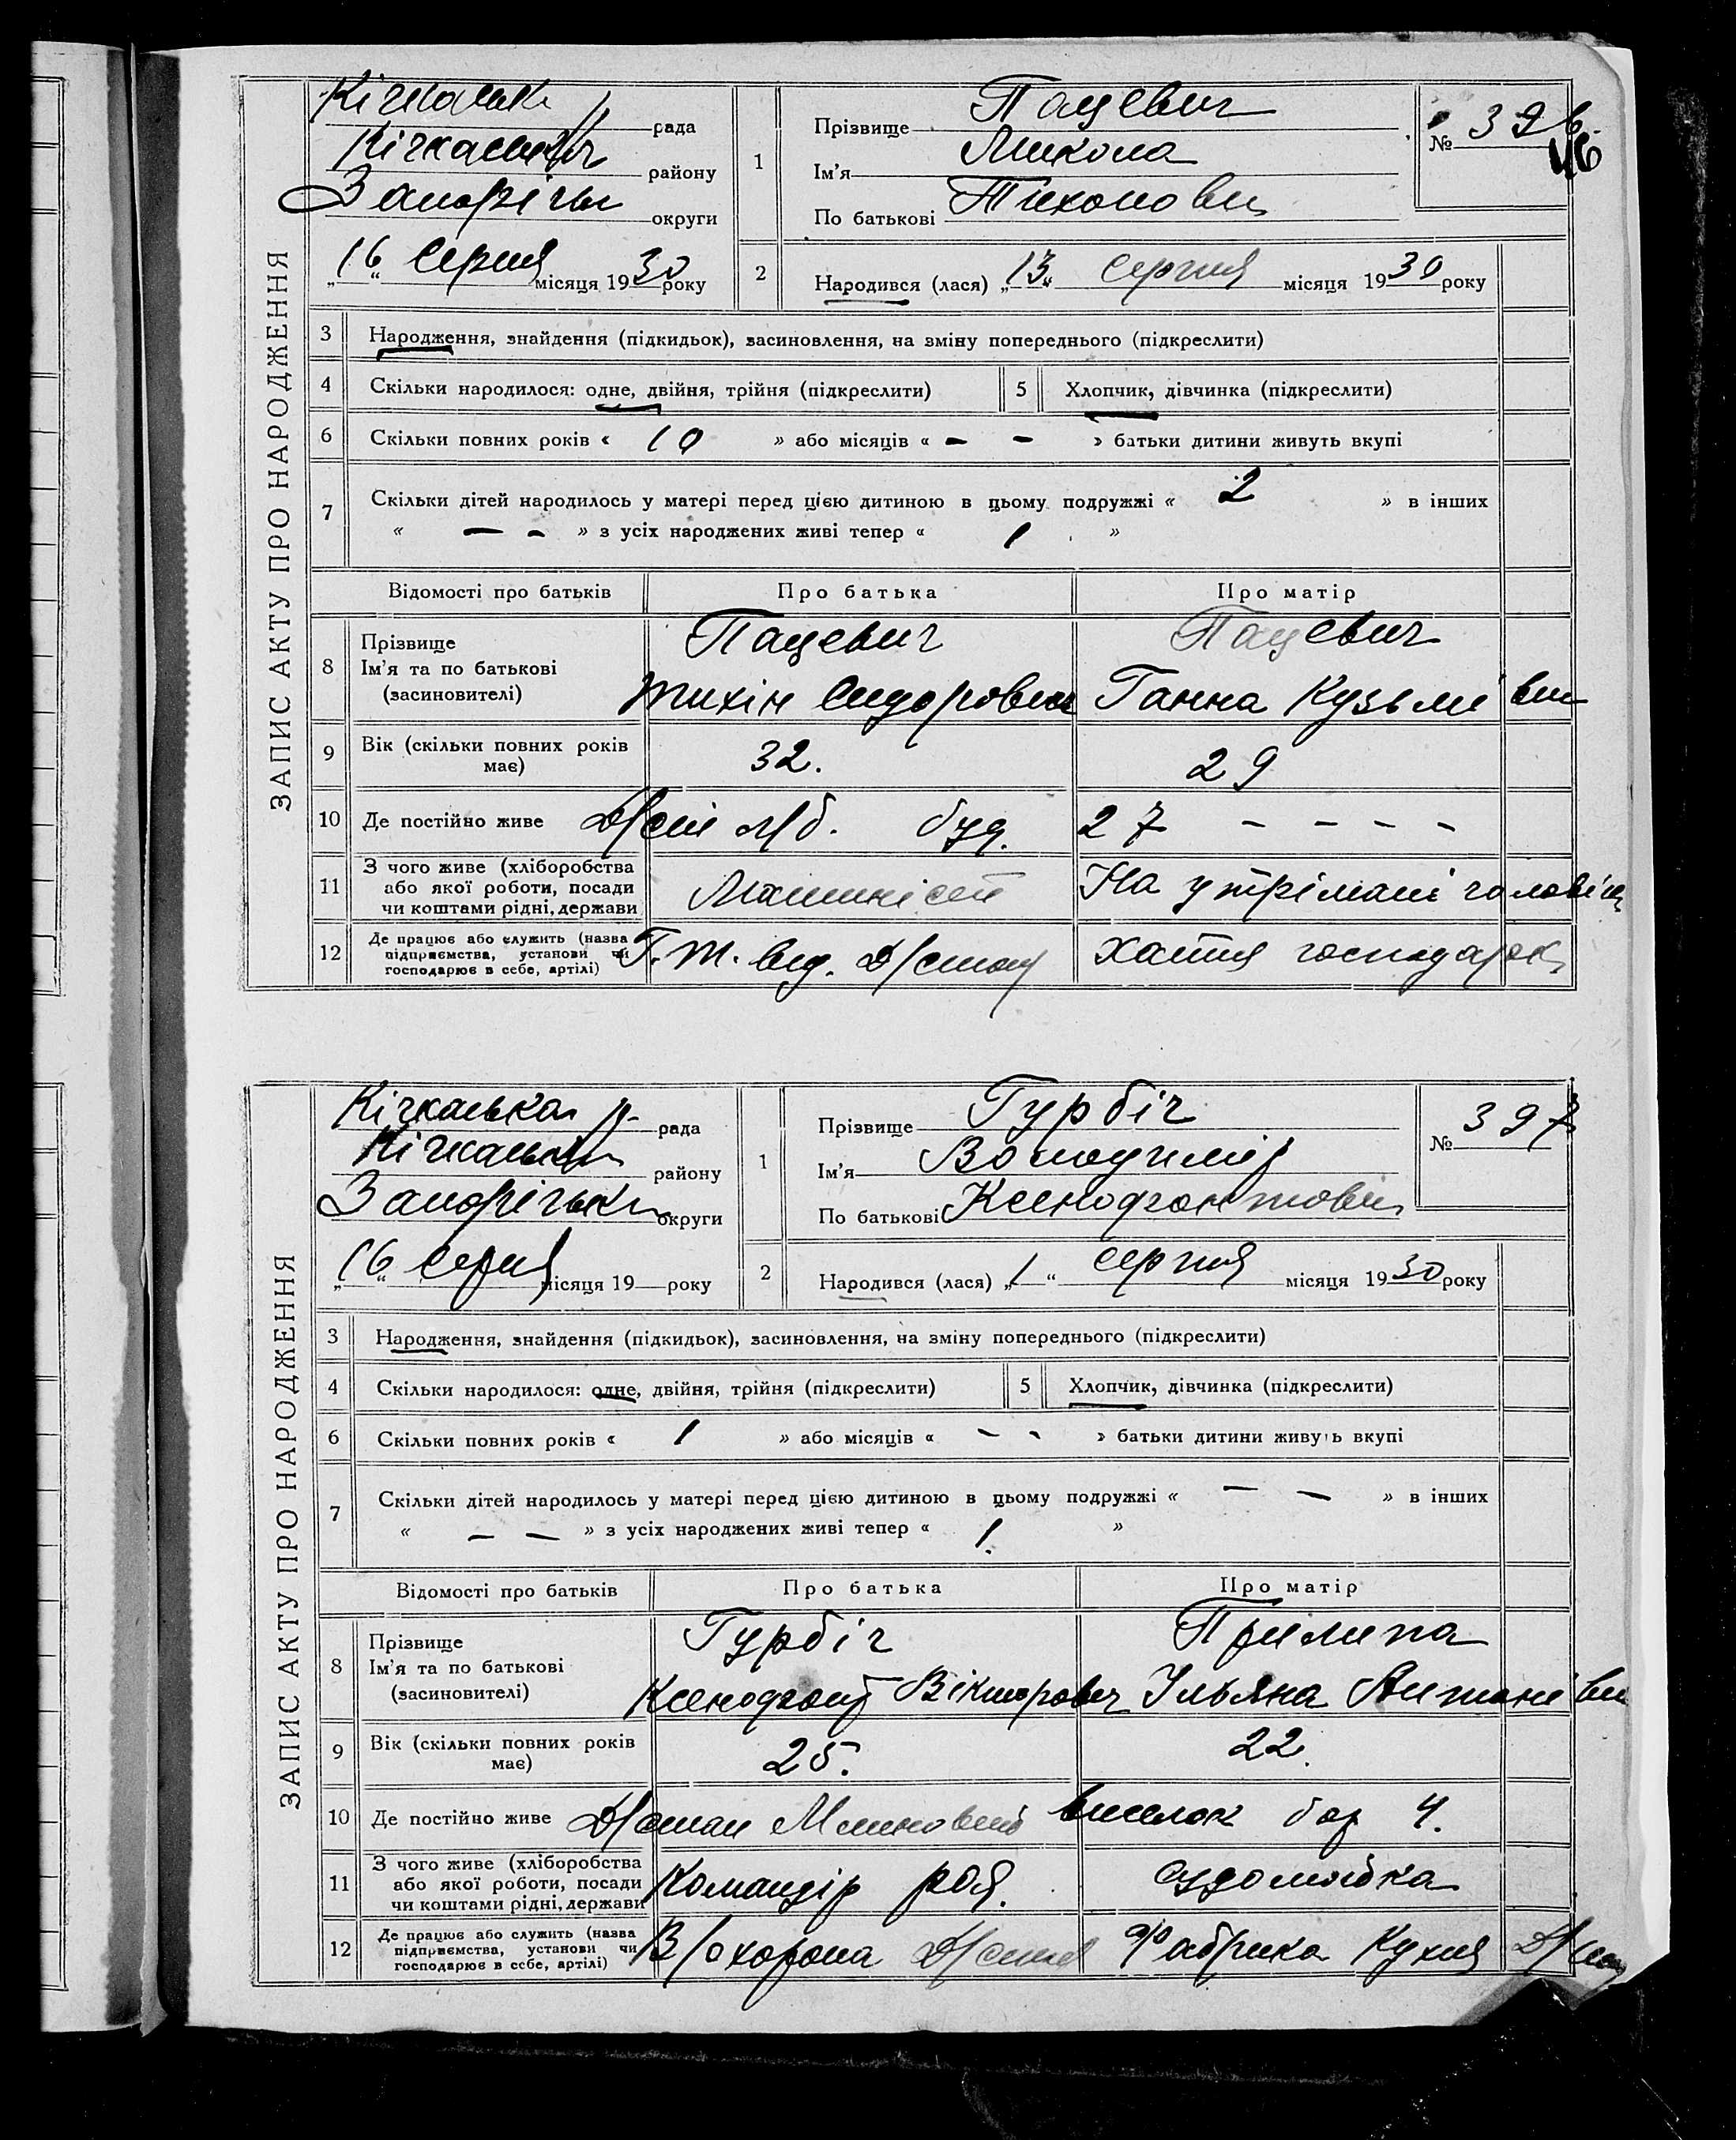 ЗАПИС АКТУ ПРО НАРОДЖЕННЯ
рада
району
Запоріж округи
„16“ Серпня місяця 1930 року
1
Прізвище Пацевич
Ім'я Микола
По батькові Тихонович
№ 396
2
Народився (лася) „13“ Серпня місяця 1930 року
3 Народження, знайдення (підкидьок), засиновлення, на зміну попереднього (підкреслити)
4 Скільки народилося: одне, двійня, трійня (підкреслити) 5 Хлопчик, дівчинка (підкреслити)
6 Скільки повних років « 10 » або місяців « – – » батьки дитини живуть вкупі
7 Скільки дітей народилось у матері перед цією дитиною в цьому подружжі « 2 » в інших
« – – » з усіх народжених живі тепер « 1 »
Відомості про батьків Про батька Про матір
8 Прізвище Пацевич Пацевич
Ім'я та по батькові
(засиновителі) Тихін Сидорович Ганна Кузьмівн
9 Вік (скільки повних років має) 32. 29
10 Де постійно живе буд. 27 – – – –
11 З чого живе (хліборобства або якої роботи, посади чи коштами рідні, держави Машиніст На утрімані чоловіка
12 Де працює або служить (назва підприємства, установи чи господарює в себе, артілі) Хатня господарк
ЗАПИС АКТУ ПРО НАРОДЖЕННЯ
Кічкаська р. рада
району
Запоріжськ округи
„16“ Серпня місяця 19 року
1
Прізвище Гурбіч
Ім'я Володимир
По батькові Ксенофонтович
№ 397
2
Народився (лася) „1“ Серпня місяця 1930 року
3 Народження, знайдення (підкидьок), засиновлення, на зміну попереднього (підкреслити)
4 Скільки народилося: одне, двійня, трійня (підкреслити) 5 Хлопчик, дівчинка (підкреслити)
6 Скільки повних років « 1 » або місяців « – – » батьки дитини живуть вкупі
7 Скільки дітей народилось у матері перед цією дитиною в цьому подружжі « – – » в інших
« – – » з усіх народжених живі тепер « 1. »
Відомості про батьків Про батька Про матір
8 Прізвище Гурбіч Прилипа
Ім'я та по батькові
(засиновителі) Ксенофонт Вікторович Ульяна Антонівн
9 Вік (скільки повних років має) 25. 22.
10 Де постійно живе виселок бар 4.
11 З чого живе (хліборобства або якої роботи, посади чи коштами рідні, держави Командір роя. судомойка
12 Де працює або служить (назва підприємства, установи чи господарює в себе, артілі) В/охорона Фабрика Кухня